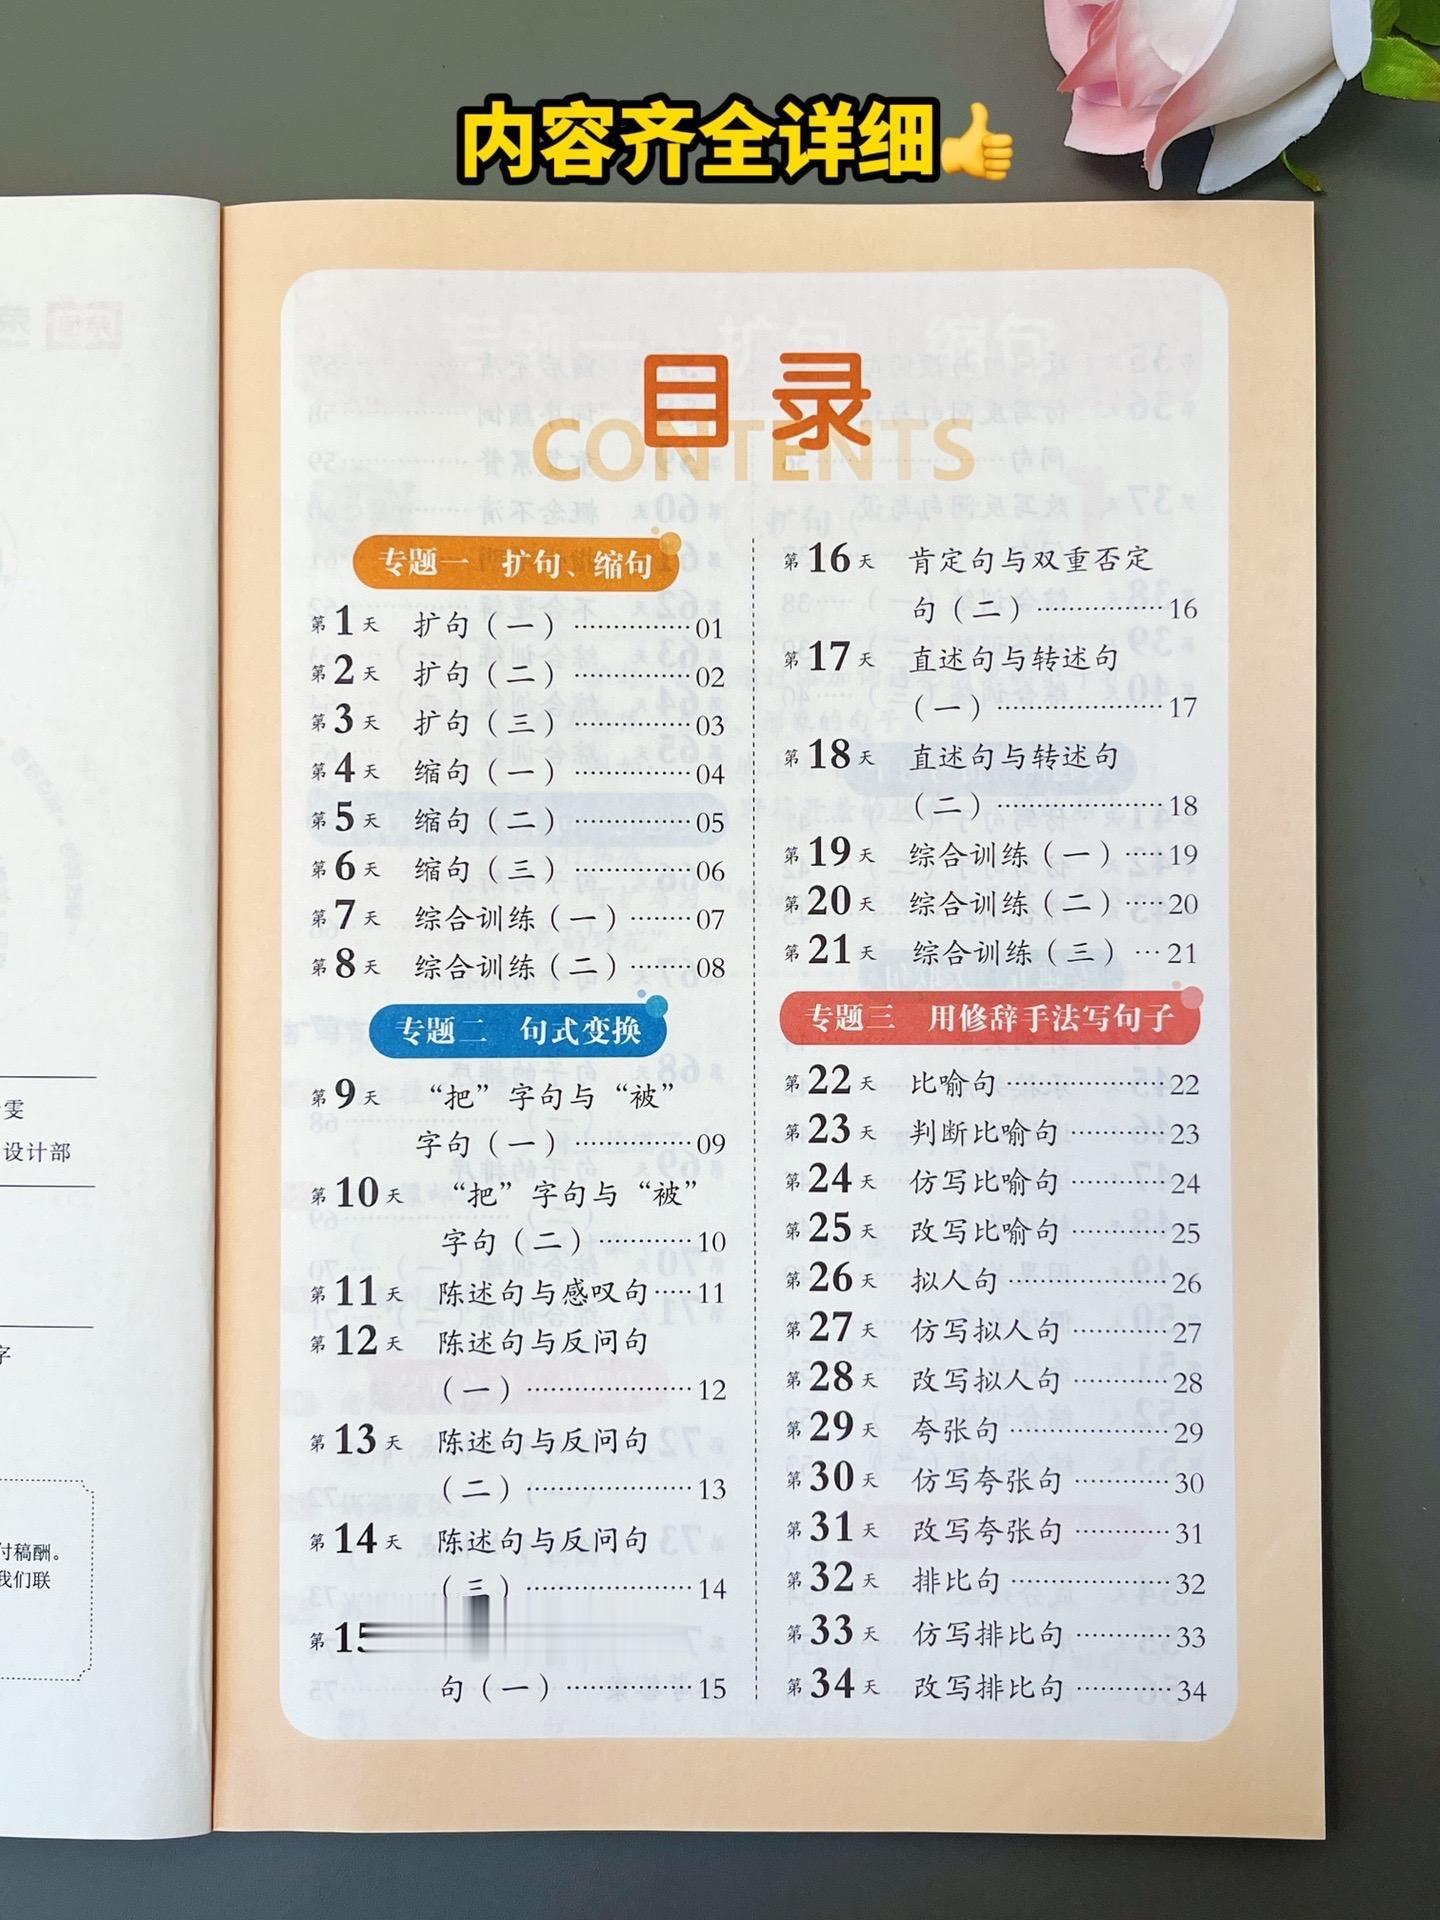 内容齐全详细👍
目录
CONTENTS
专题一 扩句、缩句
第1天 扩句（一）……………01
第2天 扩句（二）……………02
第3天 扩句（三）……………03
第4天 缩句（一）……………04
第5天 缩句（二）……………05
第6天 缩句（三）……………06
第7天 综合训练（一）………07
第8天 综合训练（二）………08
专题二 句式变换
第9天 “把”字句与“被”
字句（一）……………09
第10天 “把”字句与“被”
字句（二）…………10
第11天 陈述句与感叹句……11
第12天 陈述句与反问句
（一）…………………12
第13天 陈述句与反问句
（二）…………………13
第14天 陈述句与反问句
（三）…………………14
第15
句（一）……………15
第16天 肯定句与双重否定
句（二）……………16
第17天 直述句与转述句
（一）…………………17
第18天 直述句与转述句
（二）…………………18
第19天 综合训练（一）……19
第20天 综合训练（二）……20
第21天 综合训练（三）…21
专题三 用修辞手法写句子
第22天 比喻句………………22
第23天 判断比喻句…………23
第24天 仿写比喻句…………24
第25天 改写比喻句…………25
第26天 拟人句………………26
第27天 仿写拟人句…………27
第28天 改写拟人句…………28
第29天 夸张句………………29
第30天 仿写夸张句…………30
第31天 改写夸张句…………31
第32天 排比句………………32
第33天 仿写排比句…………33
第34天 改写排比句…………34
雯
设计部
字
付稿酬。
我们联